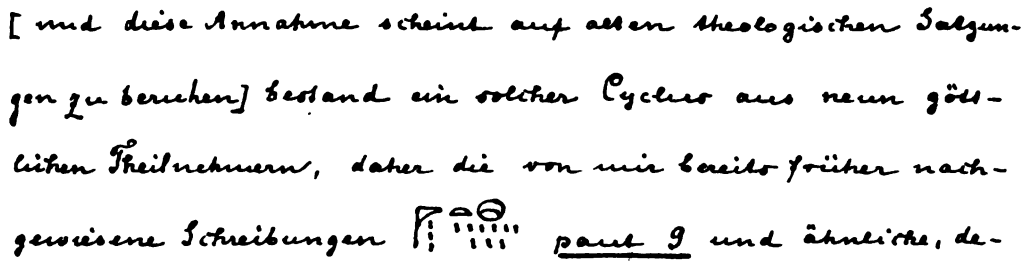 [und diese Annahme scheint auf alten theologischen Satzun-
gen zu beruhen] bestand ein solcher Cyclus aus neun gött-
lichen Theilnehmern, daher die von mir bereits früher nach-
gewiesene Schreibungen paut 9 und ähnliche, de-